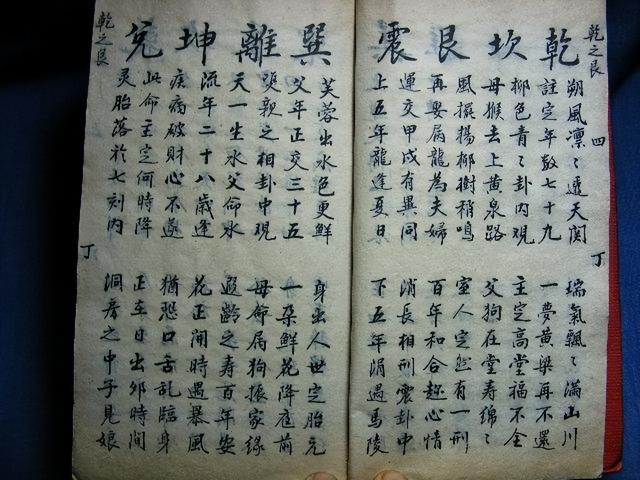 乾之艮 四 丁
乾 坎 艮 震
朔風凛〻透天関 瑞氣飄〻滿山川
註定年数七十九 一夢黄粱再不還
柳色青〻卦內观 主定高堂福不全
母猴去上黄泉路 父狗在堂寿绵〻
風擺揚柳樹稍鳴 室人定然有一刑
再娶属龍為夫婦 百年和合趂心情
運交甲戌有異同 消長相刑震卦中
上五年龍逢夏日 下五年涓遇馬陵
巽 離 坤 兌
芙蓉出水色更鮮 身出人世定胎元
父年正交三十五 一朶鮮花降庭前
雙親之相卦中現 母命属狗振家缘
天一生水父命水 遐齡之寿百年安
流年二十八歲逢 花正開時遇暴風
疾病破財心不遂 猶恐口舌乱臨身
此命主定何時降 正车日出夘時間
灵胎落於七刻內 洞房之中子見娘
乾之艮 丁